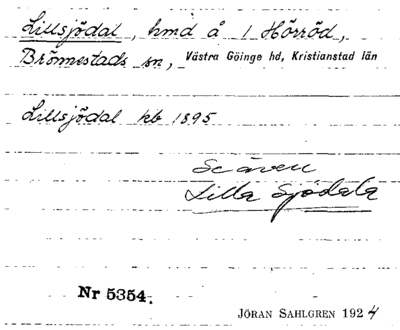 Lillsjödal, hmd å 1 Hörröd,
Brönnestads sn, Västra Göinge hd, Kristianstad län
Lillsjödal kb 1895
Se även
Lilla Sjödala
Nr 5354.
JÖRAN SAHLGREN 1924